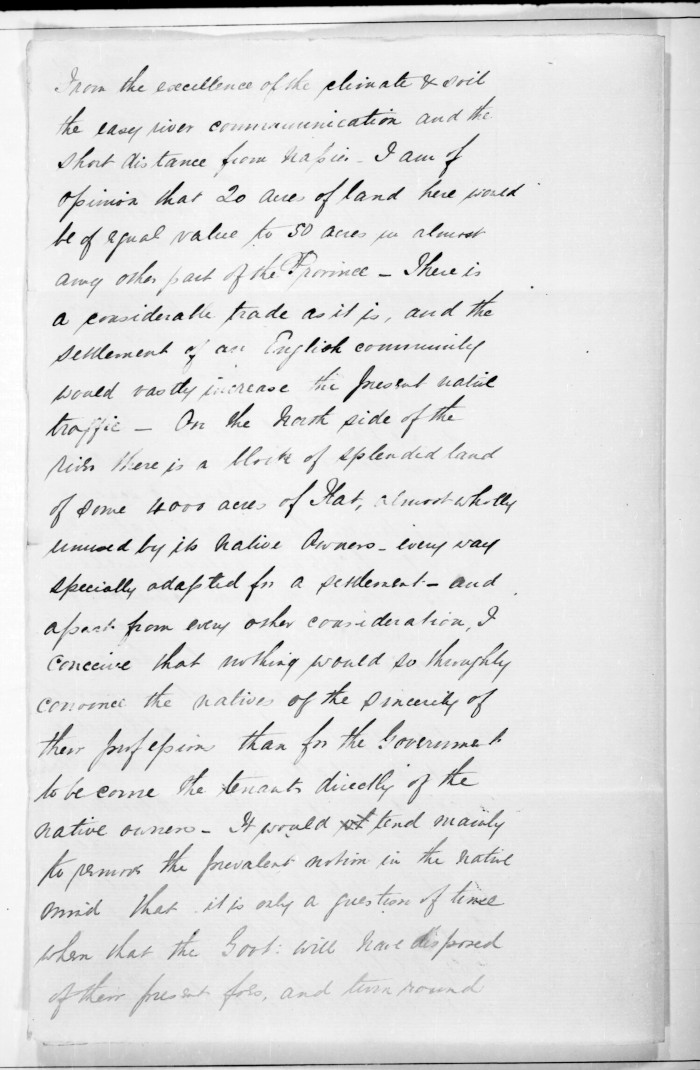 From the excellence of the climate & soil
the easy river communication and the
short distance from Napier - I am of
opinion that 20 acres of land here would
be of equal value to 50 acres in almost
any other part of the Province - There is
a considerable trade as it is, and the
settlement of an English community
would vastly increase the present native
traffic - On the North side of the
river there is a block of splended land
of some 4000 acres of Flat, almost wholly
unused by its Native Owners - every way
specially adapted for a settlement - and
apart from every other consideration, I
conceive that nothing would so throughly
convince the natives of the sincerity of
their professions than for the Government
to become the tenants directly of the
native owners - It would tend mainly
to remove the prevalent notion in the native
mind that it is only a question of time
when that the Govt: will have disposed
of their present foes, and turn round